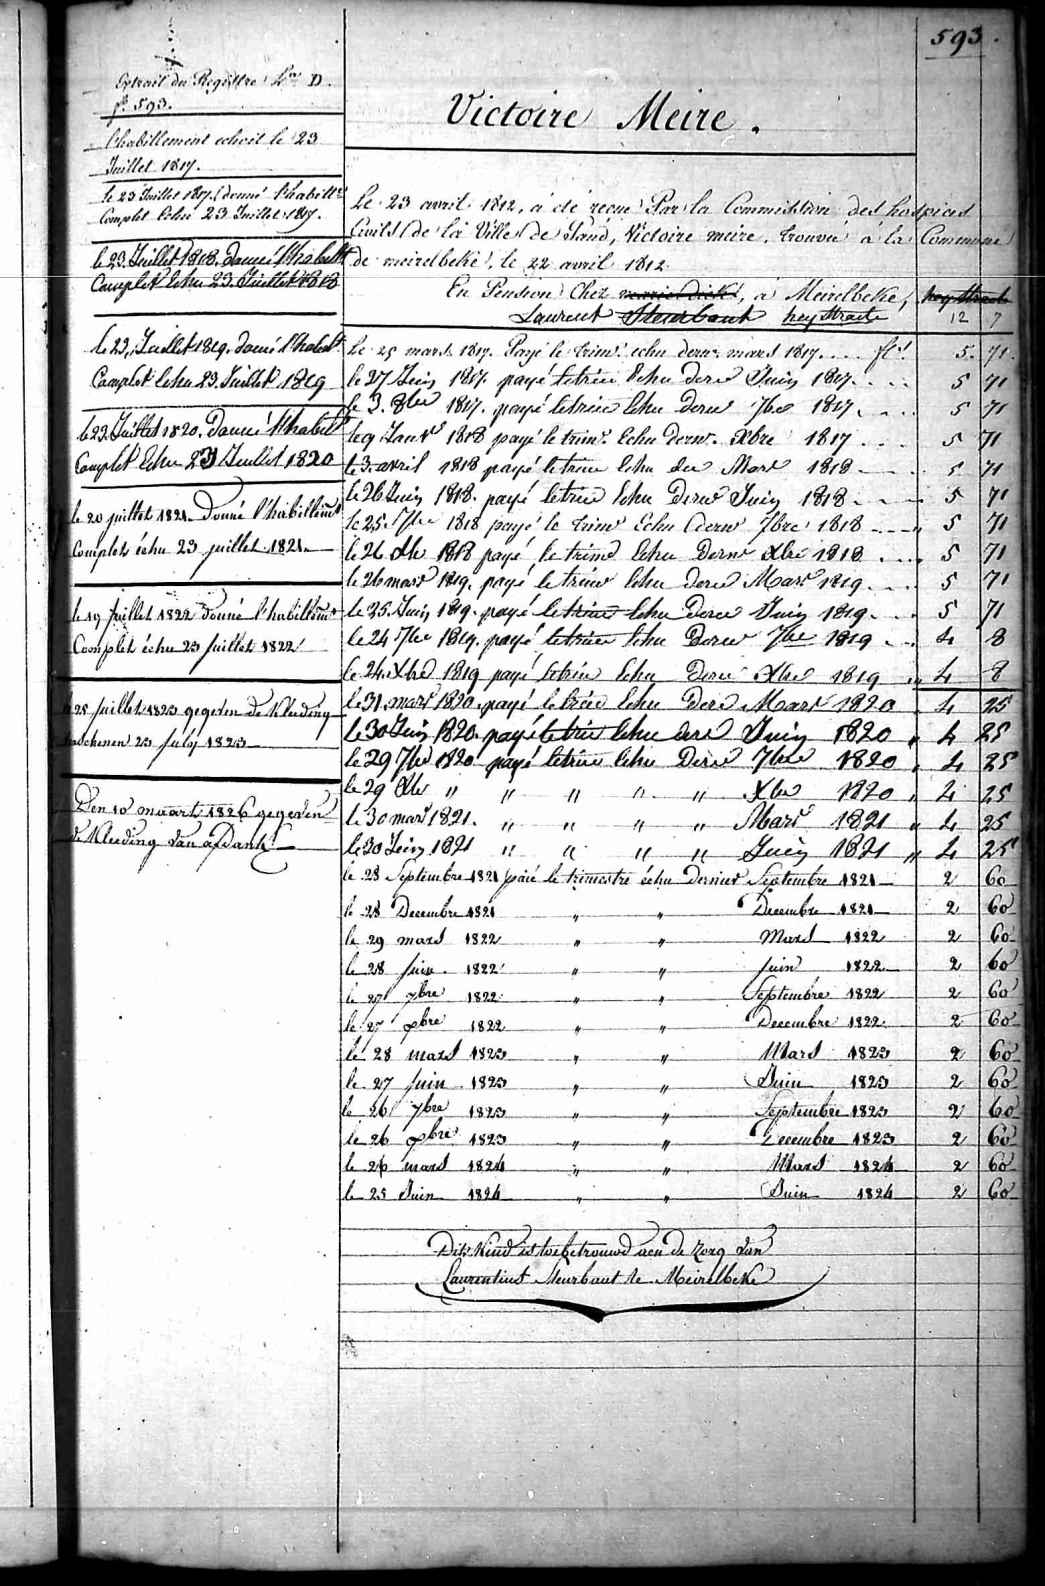 593.
Extrait du Registre Lra D.
fo 593.
l'habillement echoit le 23
Juillet 1817.
le 23 Juillet 1817. donné l'habillt
Complet Echu 23 Juillet 1817.
le 23. Juillet 1818. donné l'habillt
Complet Echu 23. Juillet 1818
le 23. Juillet 1819. donné l'habilt
Complet Echu 23. Juillet 1819
le 23. Juillet 1820. Donné l'habilt
Complet Echu 23 Juillet 1820
le 20 juillet 1821. Donné l'habillemt
Complet échu 23 juillet 1821.
le 19 juillet 1822 donné l'habillemt
Complet échu 23 juillet 1822
25 juillet 1823 gegeven de Kleeding
verschenen 23 July 1823
Den 10 maart 1826 gegeven
de Kleeding van afdank
Victoire Meire.
Le 23 avril 1812, a été reçue Par la Commission des hospices
Civils de la Ville de Gand, Victoire meire. trouvée à la Commune
de meirelbeke, le 22 avril 1812
En Pension Chez , à Meirelbeke, hey Straete
Laurent Steurbaut hey Straete 12 7
Le 25 mars 1817. Payé le trimr echu dernr mars 1817. . . . fls 5. 71.
le 27 Juin 1817. payé letrim Echu derr Juin 1817. . . . 5 71
le 3. 8bre 1817. payé letrim Echu derr 7bre 1817. . . . 5 71
le 9 Janvr 1818 payé le trimr. Echu dernr. Xbre 1817 . . . 5 71
le 3. avril 1818 payé letrim Echu der Mars 1818 . . . 5 71
le 26 Juin 1818. payé letrim Echu Derr Juin 1818 . . . 5 71
le 25. 7bre 1818 payé le trimr Echu dernr 7bre 1818 . . . " 5 71
le 26 Xbr 1818 payé le trimr Echu Dernr Xbre 1818 . . . . 5 71
le 26 mars 1819. payé le trimr Echu derr Mars 1819. . . . 5 71
le 25. Juin 1819. payé le trimr Echu Derr Juin 1819. . . . 5 71
le 24 7bre 1819. payé letrim Echu Derr 7bre 1819 . . . 4 8
le 24. Xbre 1819 payé letrim Echu Derr Xbre 1819 " 4 8
le 31. mars 1820. payé le trim Echu Derr Mars 1820 . 4 25
le 30 Juin 1820. payé letrim Echu derr Juin 1820 " 4 25
le 29 7bre 1820 payé letrim Echu Derr 7bre 1820 . 4 25
le 29 Xbr " " " " " Xbre 1820 " 4 25
le 30 mars 1821. " " " " Mars 1821 " 4 25
le 30 Juin 1821 " " " " Juin 1821 " 4 25
le 28 Septembre 1821 paié le trimestre échu Dernier Septembre 1821 2 60
le 28 Decembre 1821 " " Decembre 1821 2 60
le 29 mars 1822 " " Mars 1822 2 60
le 28 juin 1822 " " juin 1822 2 60
le 27 7bre 1822 " " Septembre 1822 2 60
le 27 xbre 1822 " " Decembre 1822 2 60
le 28 mars 1823 " " Mars 1823 2 60
le 27 juin 1823 " " Juin 1823 2 60
le 26 7bre 1823 " " Septembre 1823 2 60
le 26 xbre 1823 " " Decembre 1823 2 60
le 26 mars 1824 " " Mars 1824 2 60
le 25 Juin 1824 " " Juin 1824 2 60
Dit Kind is toebetrouwd aen de zorg van
Laurentius Steurbaut te Meirelbeke